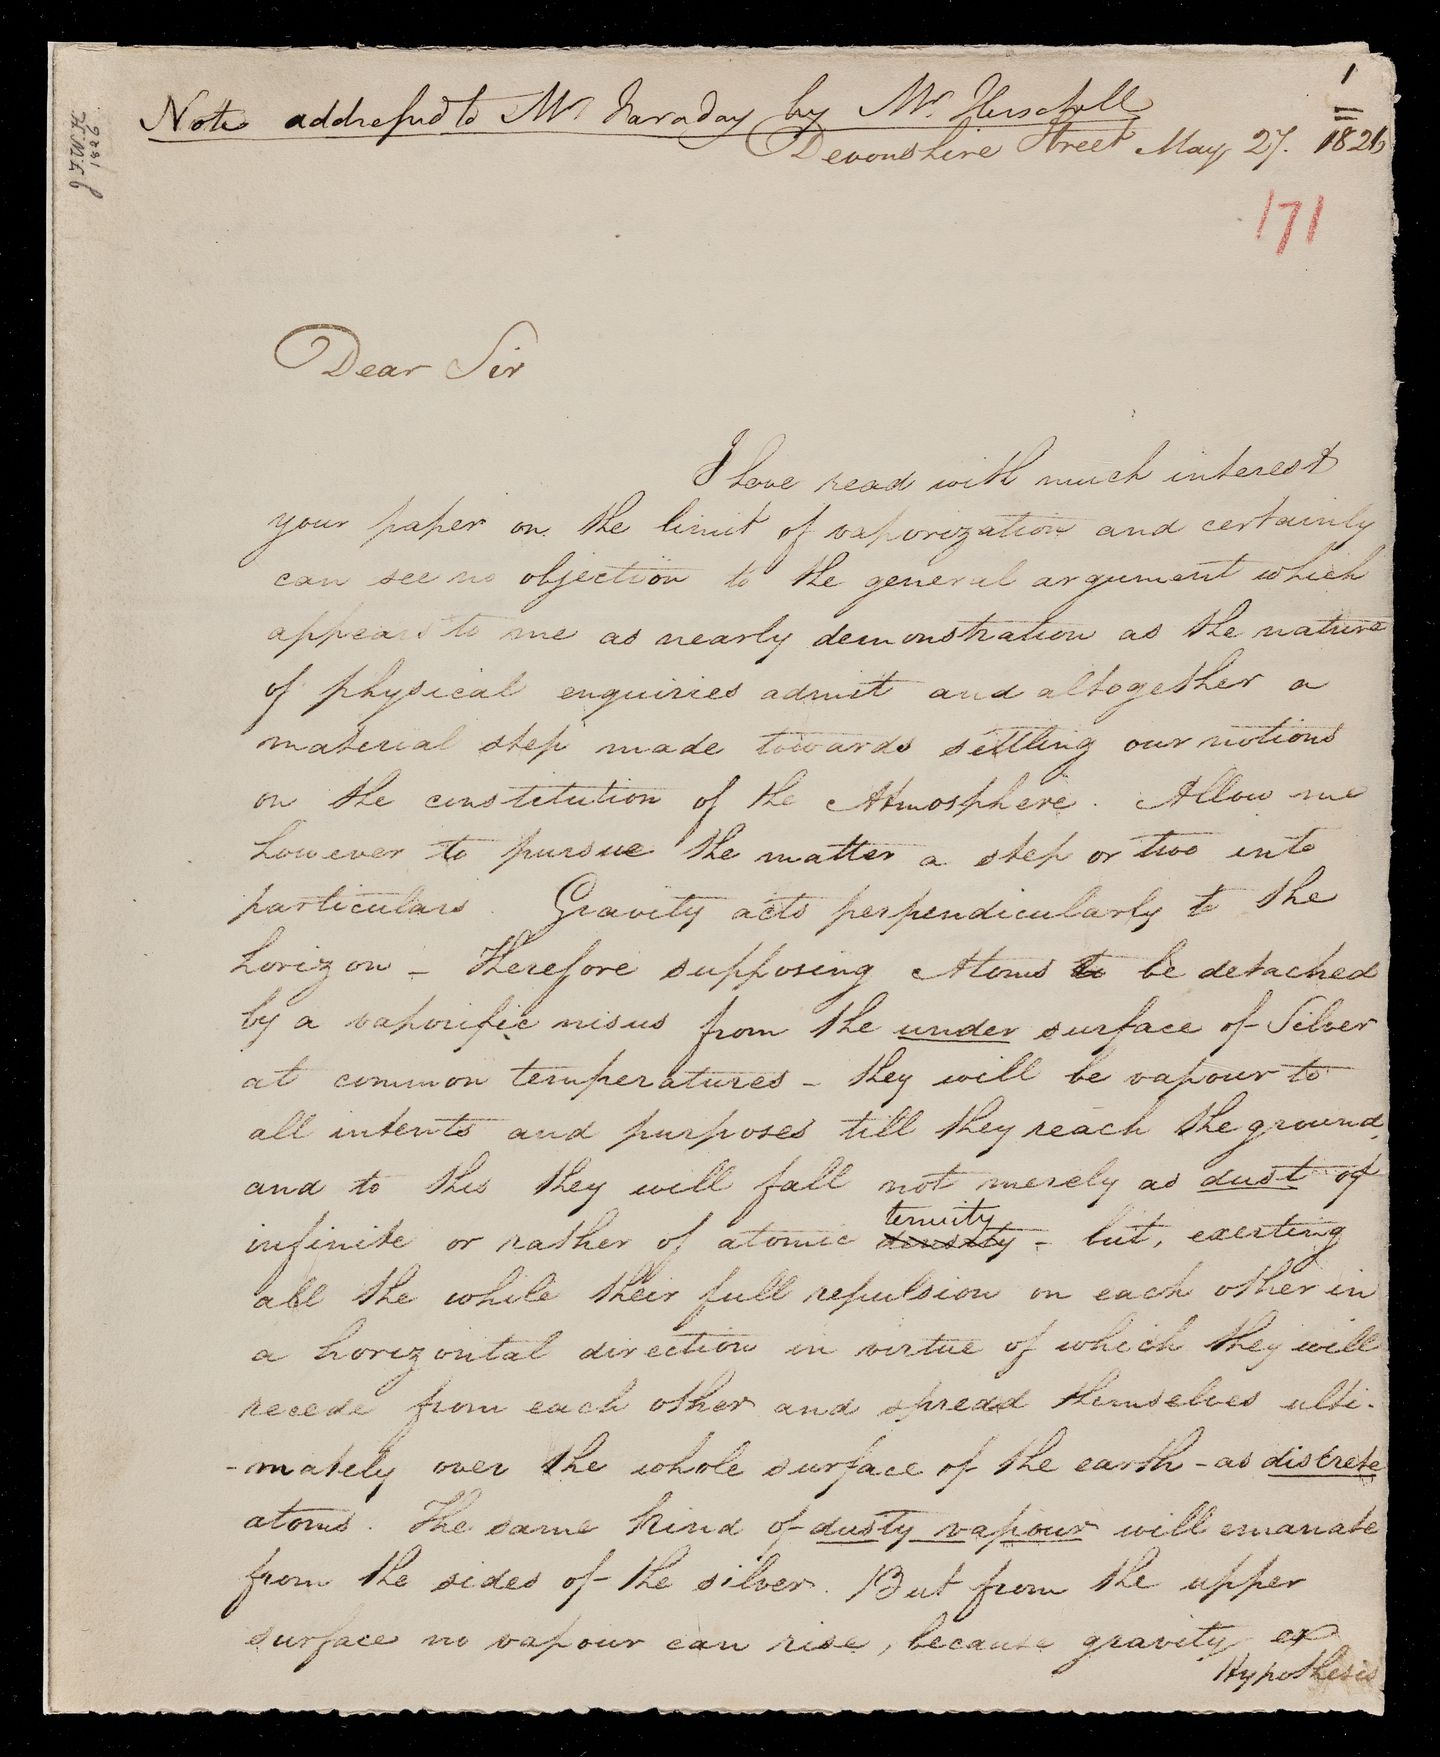 Note addressed to Mr Faraday by Mr. Herschell
1
Devonshire Street May 27. 1826
171
Dear Sir
I have read with much interest
your paper on the limit of vaporization and certainly
can see no objection to the general argument which
appears to me as nearly demonstration as the nature
of physical enquiries admit and altogether a
material step made towards settling our notions
on the constitution of the Atmosphere. Allow me
however to pursue the matter a step or two into
particulars Gravity acts perpendicularly to the
horizon - Therefore supposing Atoms to be detached
by a vaporific nisus from the under surface of Silver
at common temperatures - they will be vapour to
all intents and purposes till they reach the ground,
and to this they will fall not merely as dust of
infinite or rather of atomic density tenuity - but, exerting
all the while their full repulsion on each other in
a horizontal direction in virtue of which they will
recede from each other and spread themselves ulti-
-mately over the whole surface of the earth - as discrete
atoms. The same kind of dusty vapour will emanate
from the sides of the silver. But from the upper
surface no vapour can rise, because gravity ex
Hypothesis